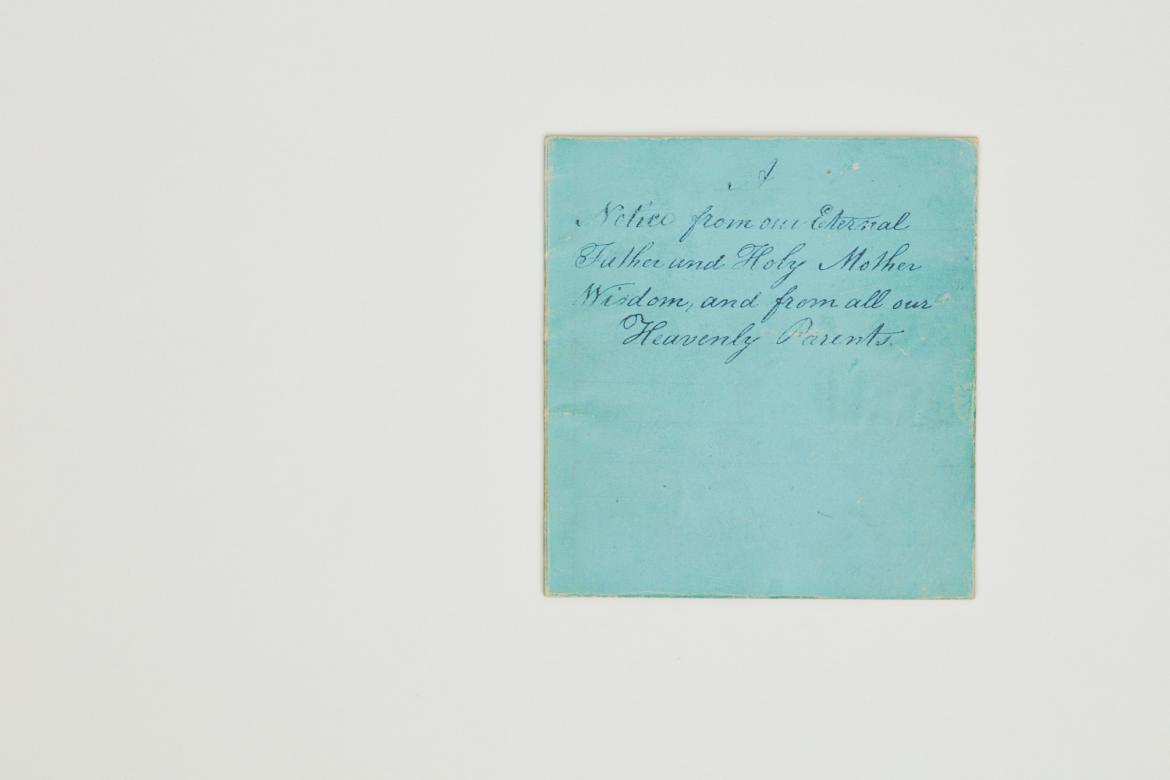 A
Notice from our Eternal
Father and Holy Mother
Wisdom, and from all our
Heavenly Parents.